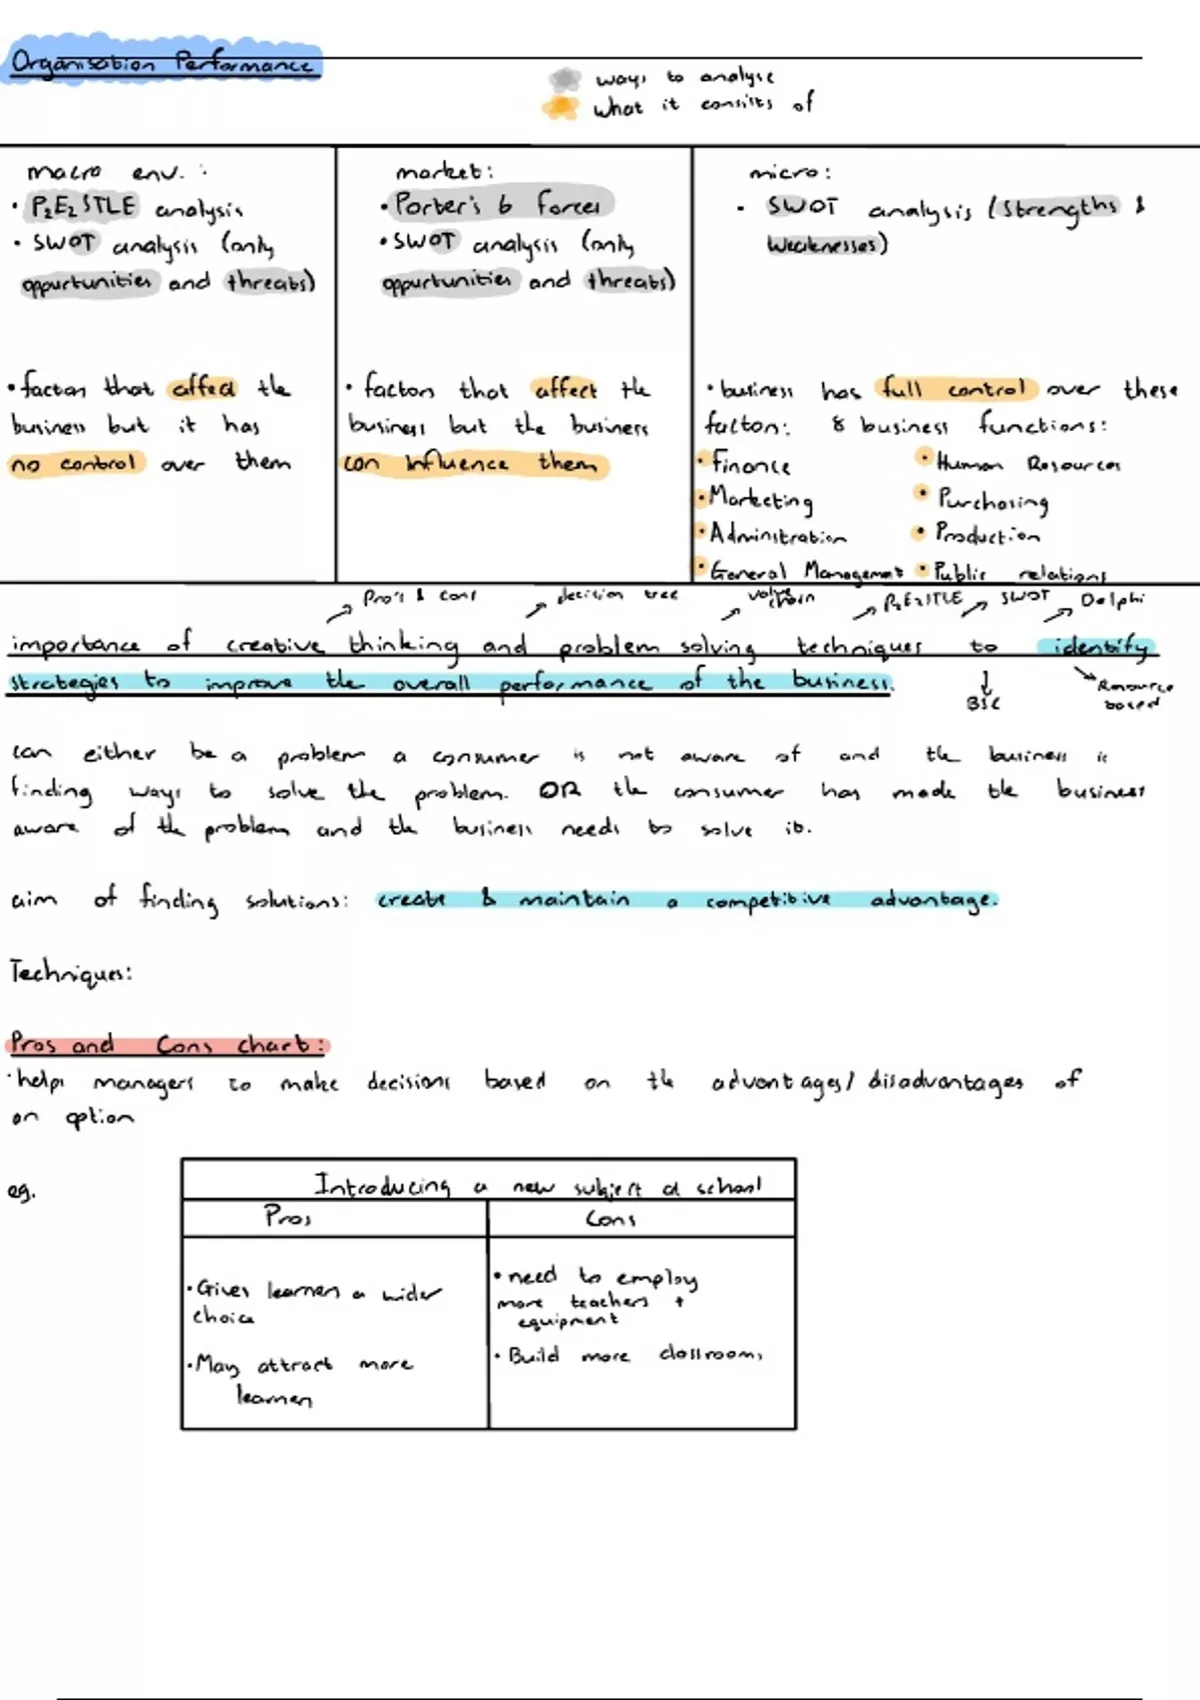 Organisation Performance
ways to analyse
what it consists of
macro env. :
• P₂E₂STLE analysis
• SWOT analysis (only
oppurtunities and threats)
• factors that affect the
business but it has
no control over them
market:
• Porter's 6 forces
• SWOT analysis (only
oppurtunities and threats)
• factors that affect the
business but the business
can influence them
micro:
• SWOT analysis (strengths &
weaknesses)
• business has full control over these
factors: 8 business functions:
• Finance • Human Resources
• Marketing • Purchasing
• Adminstration • Production
• General Management • Public relations
Pro's & cons decision tree value chain P₂E₂STLE SWOT Delphi
importance of creative thinking and problem solving techniques to identify
strategies to improve the overall performance of the business.
BSC
Resource
based
can either be a problem a consumer is not aware of and the business is
finding ways to solve the problem. OR the consumer has made the business
aware of the problem and the business needs to solve it.
aim of finding solutions: create & maintain a competitive advantage.
Techniques:
Pros and Cons chart:
• helps managers to make decisions based on the advantages/disadvantages of
an option
eg.
Introducing a new subject at school
Pros Cons
• Gives learners a wider
choice
• May attract more
learners
• need to employ
more teachers +
equipment
• Build more classrooms